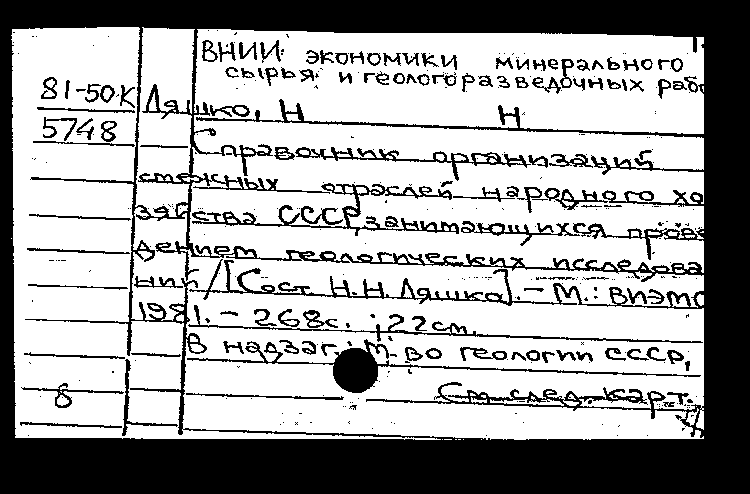 ВНИИ экономики минерального
сырья и геологоразведочных рабо
81-50К Ляшко, Н Н
5748
Справочник организаций
смежных отраслей народного хо
зяйства СССР, занимающихся прове
дением геологических исследова
ний / [Сост. Н.Н. Ляшко]. - М.: ВИЭМС
1981. - 268с. ; 22см.
В надзаг.: М-во геологии СССР,
8 См. след. карт.